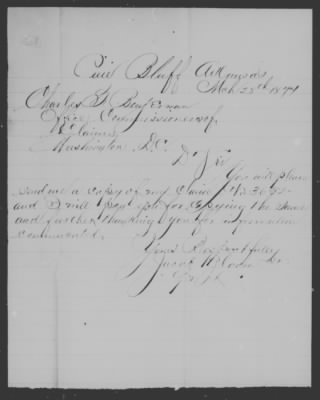 Pine Bluff Arkansas
Mch 28th 1874
Charles F Benjaman
Office Commissioners of
Claims
Washington D.C.
Dr Sir
You will please
send me a copy of my Claim
and I will pay you for Copying the same
and further thanking you for
Yours Respectfully
Jacob